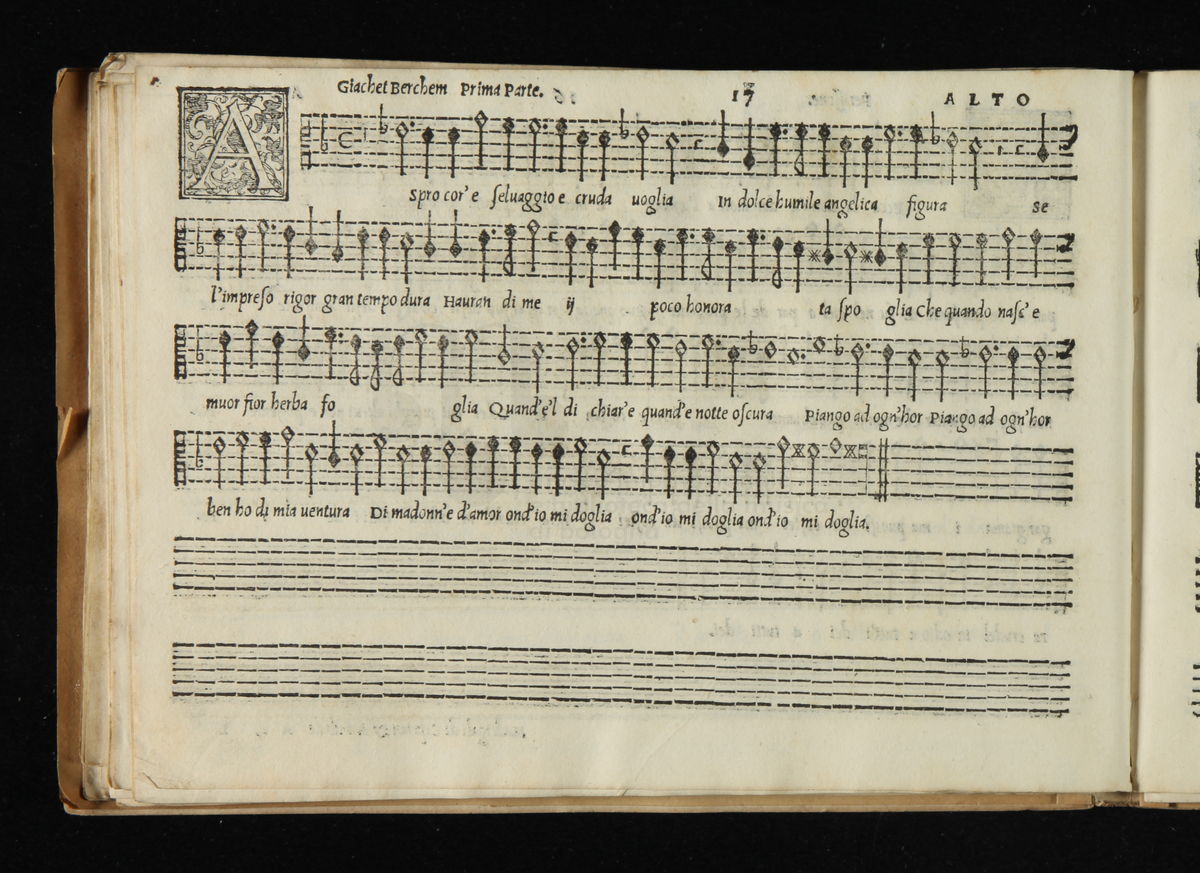 Giachet Berchem Prima Parte. 17 ALTO
A
Spro cor' e ſeluaggio e cruda uoglia In dolce humile angelica figura Se
l'impreſo rigor gran tempo dura Hauran di me ij poco honora ta ſpo glia Che quando naſc' e
muor fior herba fo glia Quand'e'l di chiar'e quand'e notte oſcura Piango ad ogn'hor Piango ad ogn'hor
ben ho di mia uentura Di madonn'e d'amor ond'io mi doglia ond'io mi doglia ond'io mi doglia.